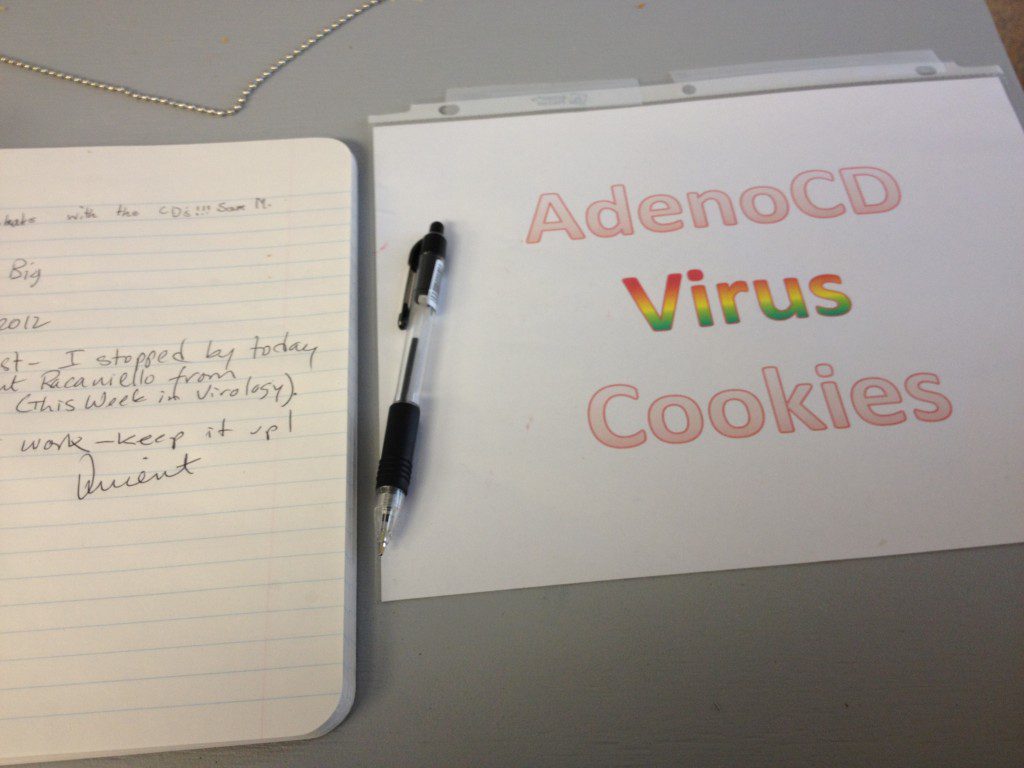 with the CDs!!! Sam M.
Big
2012
st- I stopped by today
nt Racaniello from
(This Week in Virology).
work-keep it up!
Vincent
AdenoCD
Virus
Cookies